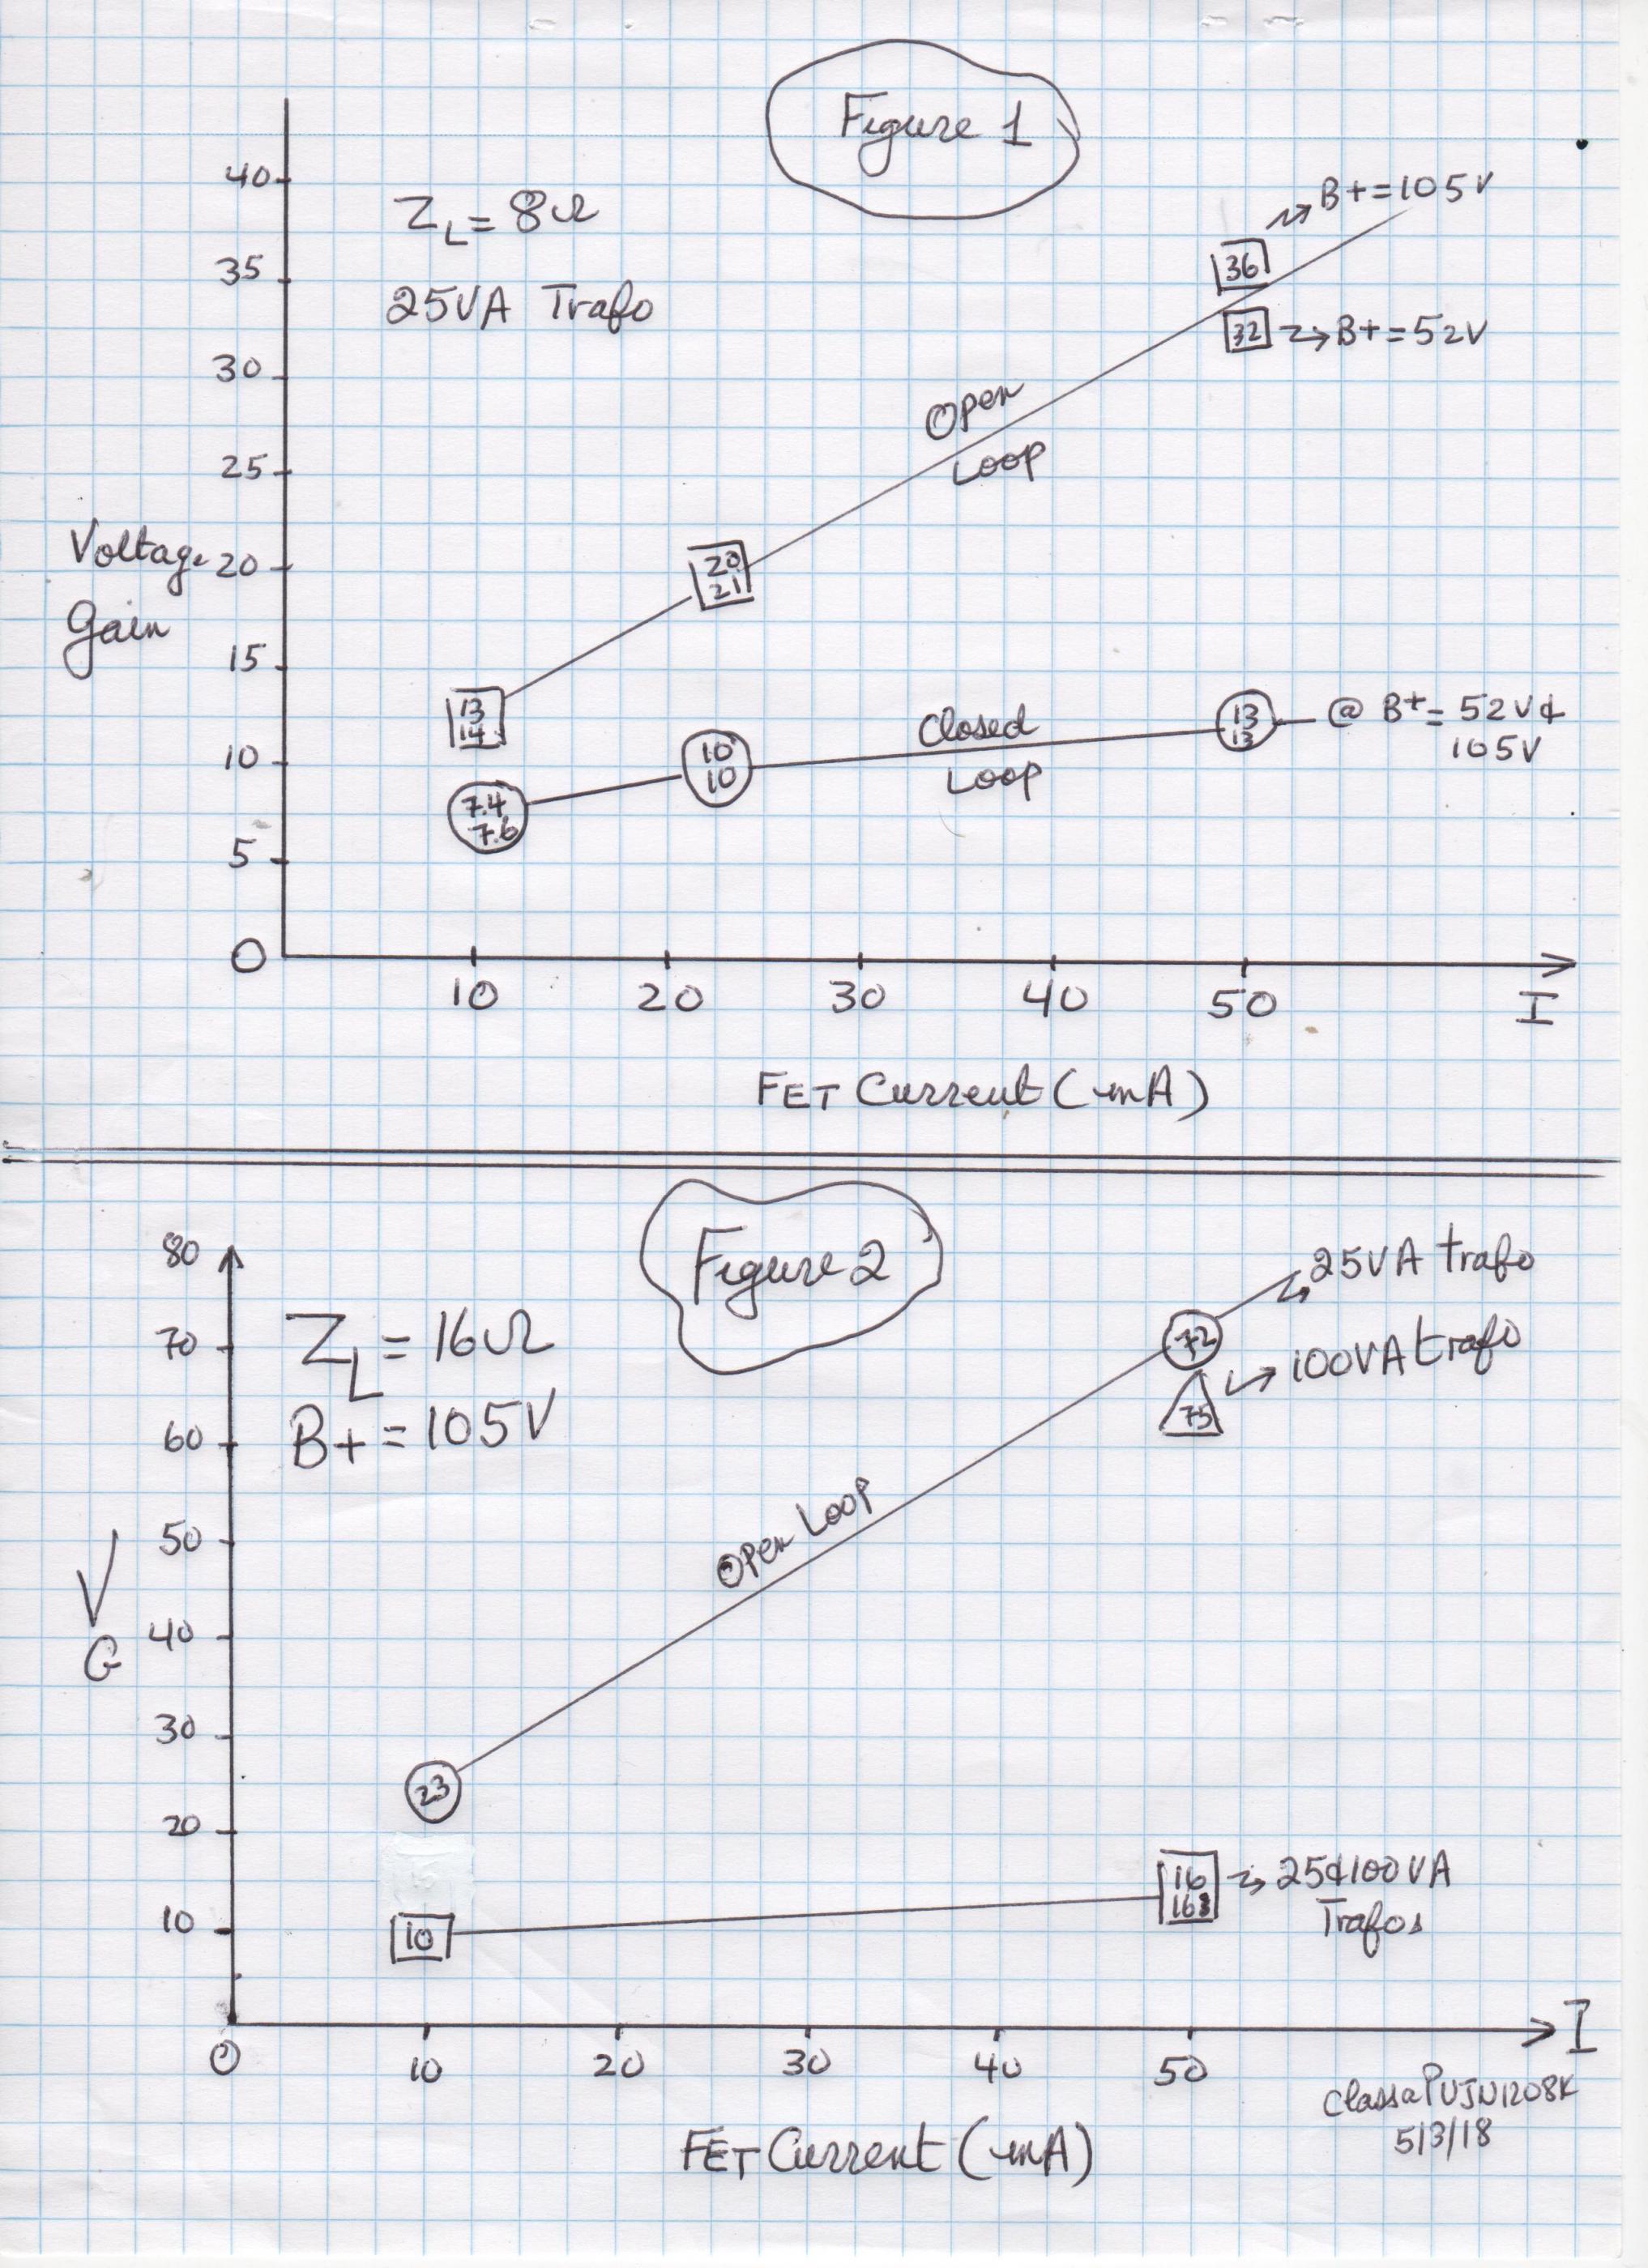 Figure 1
40
35
30
25
20
15
10
5
0
Voltage
Gain
ZL = 8Ω
25VA Trafo
B+=105V
36
32 → B+=52V
Open
Loop
20
21
13
14
Closed
Loop
13
13
@ B+= 52V &
105V
10
10
7.4
7.6
10 20 30 40 50 I
FET Current (mA)
Figure 2
80
70
60
50
40
30
20
10
V
G
ZL = 16Ω
B+ = 105V
25VA trafo
72
100VA trafo
75
Open Loop
23
16
→ 25&100VA
Trafos
10
0 10 20 30 40 50 I
FET Current (mA)
5/3/18